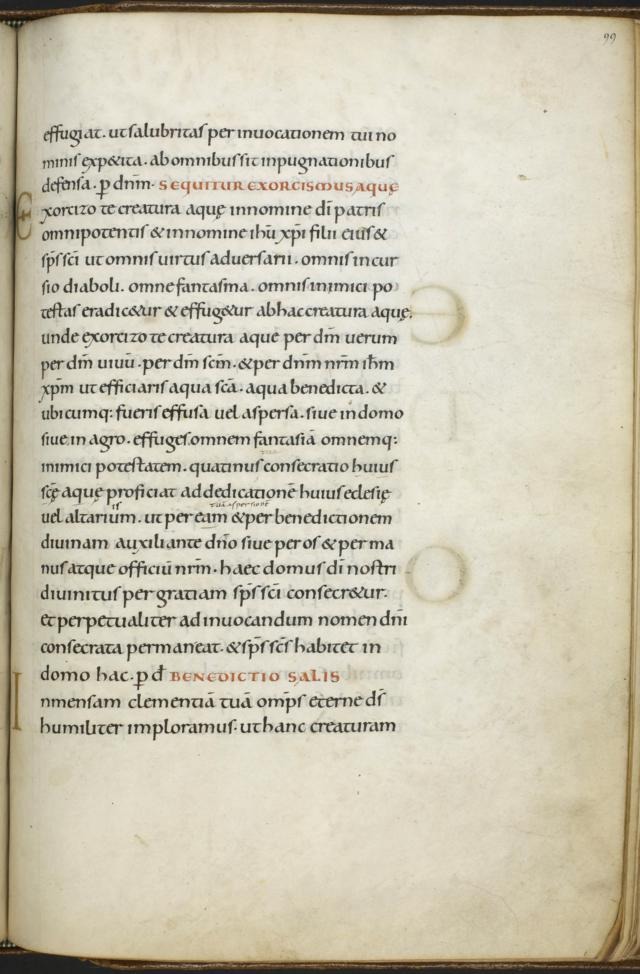 99
effugiat. ut salubritas per inuocationem tui no
minis expetita. ab omnibus sit inpugnationibus
defensa. p̄ dn̄m. SEQUITUR EXORCISMUS AQUĘ
Exorcizo te creatura aquę innomine dī patris
omnipotentis & innomine ih̄u xp̄i filii eius &
sp̄s sc̄i ut omnis uirtus aduersarii. omnis incur
sio diaboli. omne fantasma. omnis inimici po
testas eradicetur & effugetur ab hac creatura aquę.
unde exorcizo te creatura aque per dm̄ uerum
per dm̄ uiuū. per dm̄ sc̄m. & per dn̄m nr̄m ih̄m
xp̄m ut efficiaris aqua sc̄a. aqua benedicta. &
ubicumq: fueris effusa uel aspersa. siue in domo
siue in agro. effuges omnem fantasiā omnemq:
inimici potestatem. quatinus consecratio huius
sc̄ę aquę proficiat ad dedicationē huius eclesię
uel altarium. ut per eam & per benedictionem
diuinam auxiliante dn̄o siue per os & per ma
nus atque officiū nr̄m. haec domus dī nostri
diuinitus per gratiam sp̄s sc̄i consecretur.
et perpetualiter ad inuocandum nomen dn̄i
consecrata permaneat. & sp̄s sc̄s habitet in
domo hac. p̄ d̄ BENEDICTIO SALIS
Inmensam clementiā tuā omp̄s eterne ds̄
humiliter imploramus. ut hanc creaturam